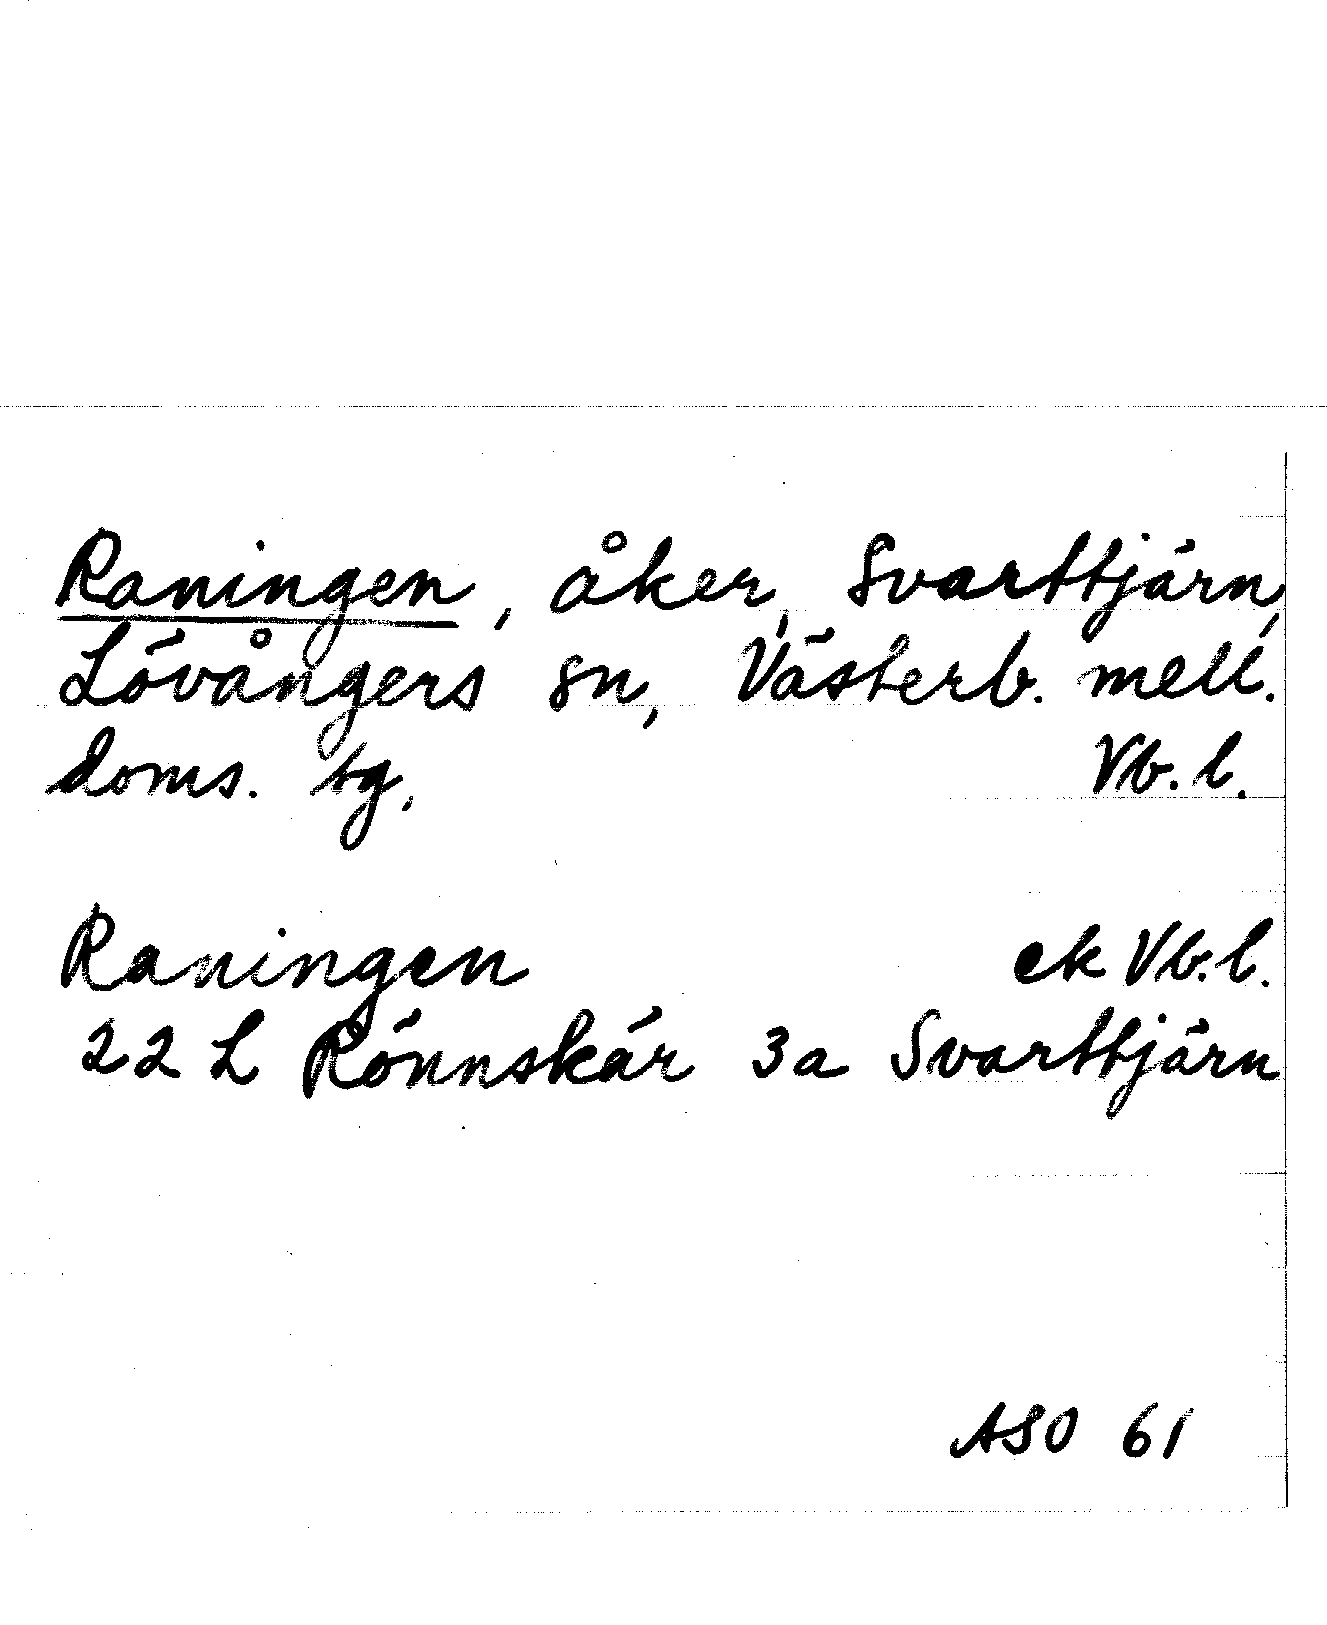 Raningen, åker, Svarttjärn,
Lövångers sn, Västerb. mell.
doms. tg. Vb. l.
Raningen ek Vb. l.
22 L Rönnskär 3a Svarttjärn
ASO 61